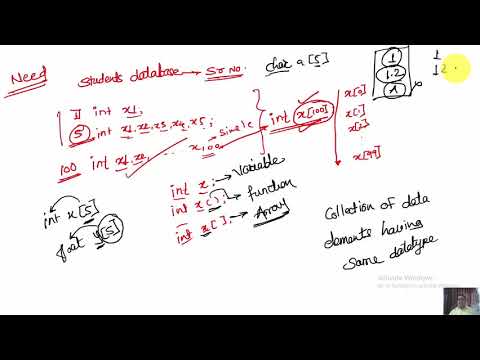 Need
Students database → Sr No.
char a[5]
1
1.2
A
1
12
1) int x1,
5) int x1, x2, x3, x4, x5;
100 int x1, x2, ... x100
single
int x[100]
x[0]
x[1]
x[2]
x[99]
int x; → Variable
int x(); → function
int x[]; → Array
int x[5]
float [5]
Collection of data
elements having
same datatype
Activate Windows